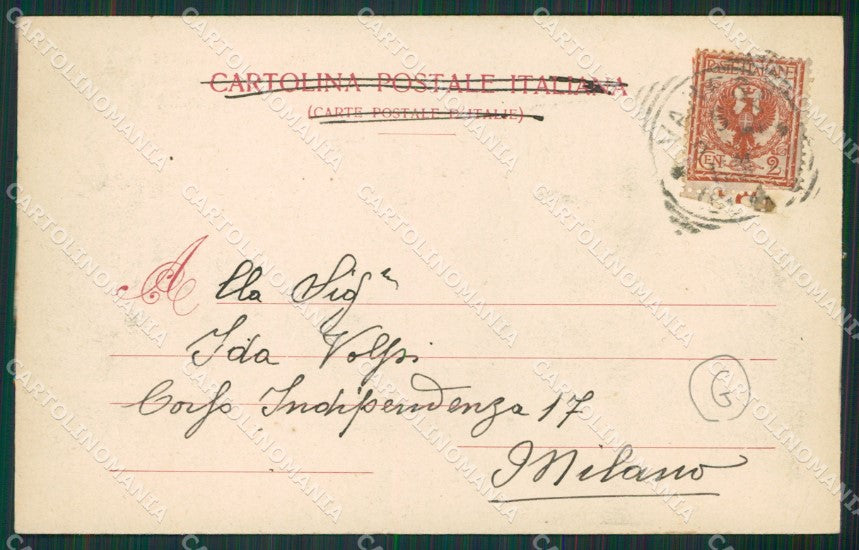 CARTOLINA POSTALE ITALIANA
(CARTE POSTALE D'ITALIE)
POSTE ITALIANE
CEN. 2
Alla Sigra
Ida Volpi
Corso Indipendenza 17
Milano
G
CARTOLINOMANIA